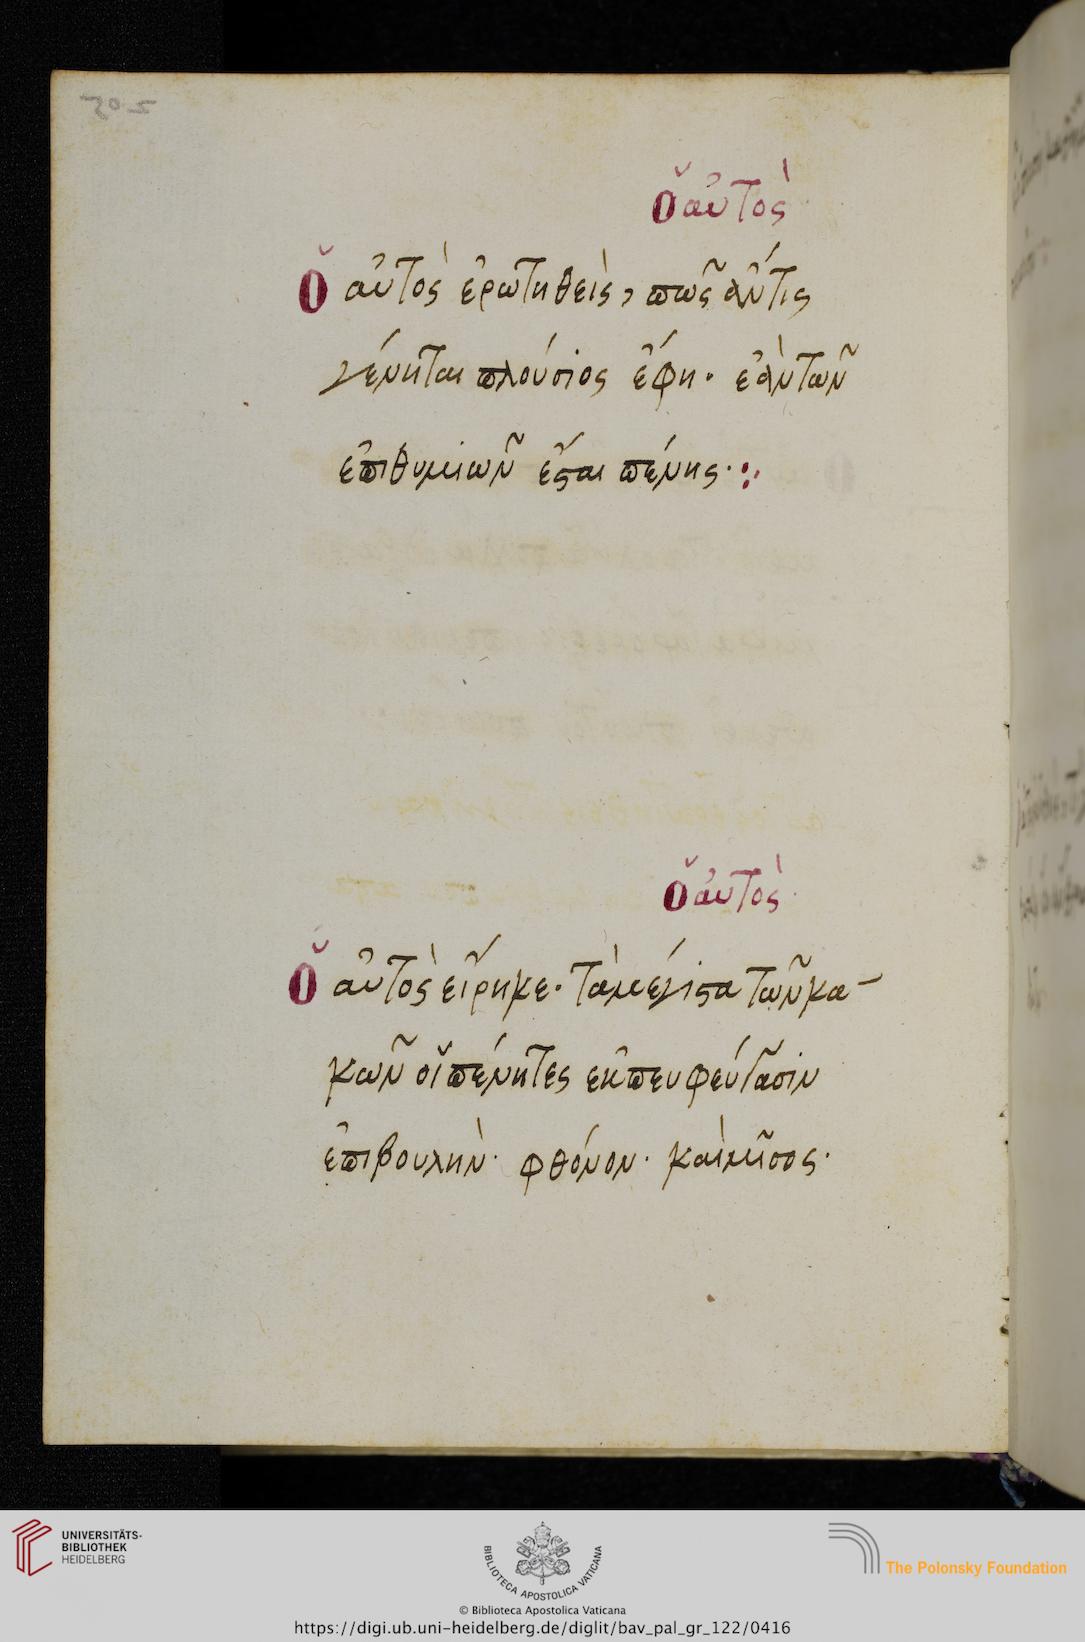 305
Ὁ αὐτὸς
Ὁ αὐτὸς ἐρωτηθεὶς, πῶς ἄν τις
γένηται πλούσιος ἔφη. ἐὰν τῶν
ἐπιθυμιῶν ἔσται πένης.
Ὁ αὐτὸς
Ὁ αὐτὸς εἴρηκε. τὰ μέγιστα τῶν κα-
κῶν οἱ πένητες ἐκπεφεύγασιν
ἐπιβουλὴν. φθόνον. καὶ μῖσος.
UNIVERSITÄTS-
BIBLIOTHEK
HEIDELBERG
BIBLIOTECA APOSTOLICA VATICANA
© Biblioteca Apostolica Vaticana
The Polonsky Foundation
https://digi.ub.uni-heidelberg.de/diglit/bav_pal_gr_122/0416